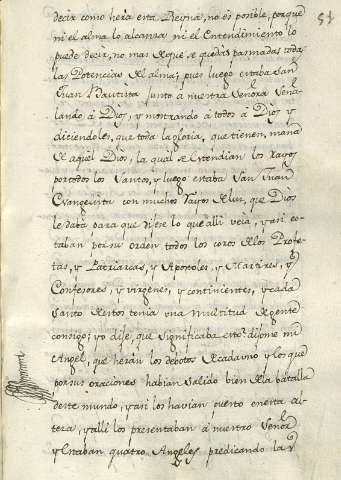 51
decir como hera esta Reyna, no es posible, porque
ni el alma lo alcansa ni el Entendimiento lo
puede decir, no mas de que se quedas pasmadas todas
las Potencias del alma; pues luego estaba San
Juan Bautista junto à nuestra Señora Señalando
à Dios, y mostrando à todos à Dios y
diciendoles, que toda la gloria, que tienen, mana
de aquel Dios, la qual se Entendian los rayos
por todos los Santos, y luego estaba San Juan
Evangelista con muchos rayos de lus, que Dios
le daba para que dijese lo que alli veia, y asi estaban
por su orden todos los coros de los Profetas,
y Patriarcas, y Apostoles, y Martires, y
Confesores, y virgenes, y continentes, y cada
Santo de estos tenia una multitud de gente
consigo; yo dije, que significaba esto? dijome mi
Angel, que heran los debotos de cada uno y los que
por sus oraciones habian salido bien de la batalla
deste mundo, y asi los havian puesto en esta altera,
y alli los presentaban à nuestro Señor
y Estaban quatro Angeles predicando la y